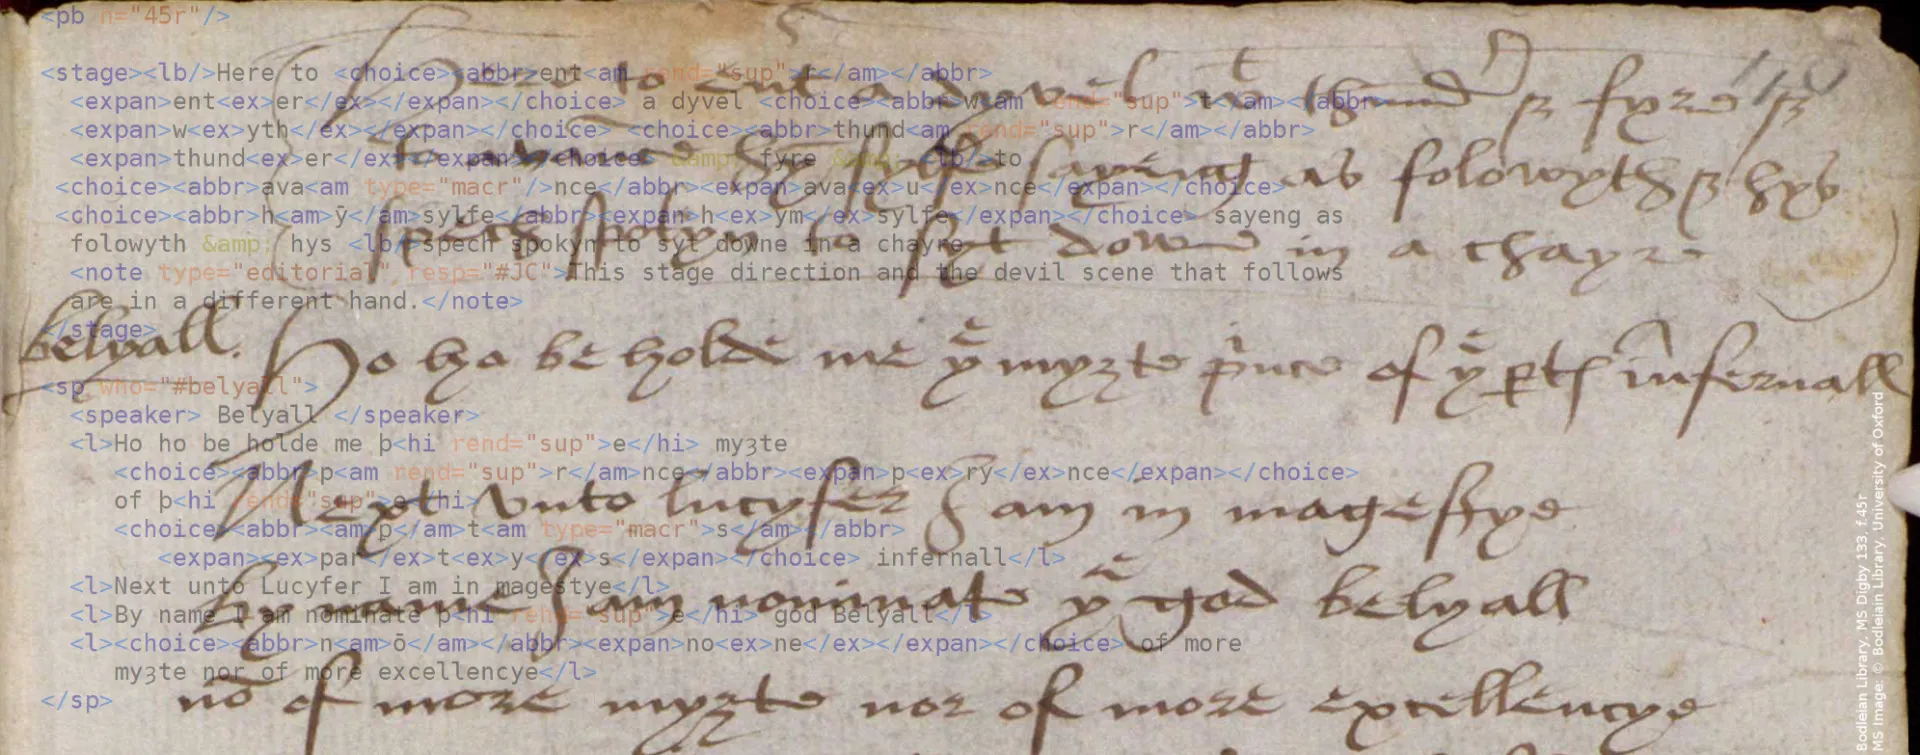 <pb n="45r"/>
<stage><lb/>Here to <choice><abbr>ent<am rend="sup">r</am></abbr>
<expan>ent<ex>er</ex></expan></choice> a dyvel <choice><abbr>w<am rend="sup">t</am></abbr>
<expan>w<ex>yth</ex></expan></choice> <choice><abbr>thund<am rend="sup">r</am></abbr>
<expan>thund<ex>er</ex></expan></choice> &amp; fyre &amp; <lb/>to
<choice><abbr>ava<am type="macr"/>nce</abbr><expan>ava<ex>u</ex>nce</expan></choice>
<choice><abbr>h<am>ȳ</am>sylfe</abbr><expan>h<ex>ym</ex>sylfe</expan></choice> sayeng as
folowyth &amp; hys <lb/>spech spokyn to syt downe in a chayre
<note type="editorial" resp="#JC">This stage direction and the devil scene that follows
are in a different hand.</note>
</stage>
<sp who="#belyall">
<speaker> Belyall </speaker>
<l>Ho ho be holde me þ<hi rend="sup">e</hi> myȝte
<choice><abbr>p<am rend="sup">r</am>nce</abbr><expan>p<ex>ry</ex>nce</expan></choice>
of þ<hi rend="sup">e</hi>
<choice><abbr><am>p</am>t<am type="macr">s</am></abbr>
<expan><ex>par</ex>t<ex>y</ex>s</expan></choice> infernall</l>
<l>Next unto Lucyfer I am in magestye</l>
<l>By name I am nominate þ<hi rend="sup">e</hi> god Belyall</l>
<l><choice><abbr>n<am>ō</am></abbr><expan>no<ex>ne</ex></expan></choice> of more
myȝte nor of more excellencye</l>
</sp>
Here to entr a dyvel wt thundr & fyre &
to avance hȳ sylfe sayeng as folowyth & hys
spech spokyn to syt downe in a chayre
belyall. Ho ho be holde me þe myȝte prnce of þe ꝑtꝭ infernall
Next vnto lucyfer I am in magestye
by name I am nominate þe god belyall
nō of more myȝte nor of more excellencye
Bodleian Library, MS Digby 133, f.45r
MS Image: © Bodleian Library, University of Oxford